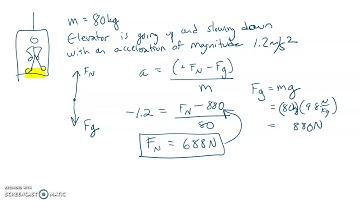 m = 80kg
Elevator is going up and slowing down
with an acceleration of magnitude 1.2m/s²
F_N
F_g
a = (+F_N - F_g) / m
-1.2 = (F_N - 880) / 80
F_N = 688N
F_g = mg
= (80kg)(9.8 N/kg)
= 880N
RECORDED WITH
SCREENCAST-O-MATIC